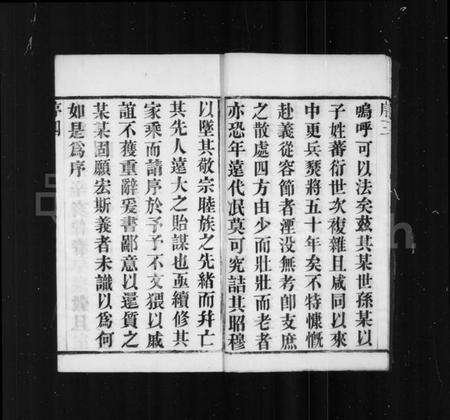 序三
嗚呼可以法矣茲其某世孫某以
子姓蕃衍世次複雜且咸同以來
中更兵燹將五十年矣不特慷慨
赴義從容節者湮没無考卽支庶
之散處四方由少而壯壯而老者
亦恐年遠代氓莫可究詰其昭穆
以墜其敬宗睦族之先緖而幷亡
其先人遠大之貽謀也亟續修其
家乘而請序於予予不文猥以戚
誼不獲重辭爰書鄙意以還質之
某某固願宏斯義者未識以爲何
如是爲序
序四